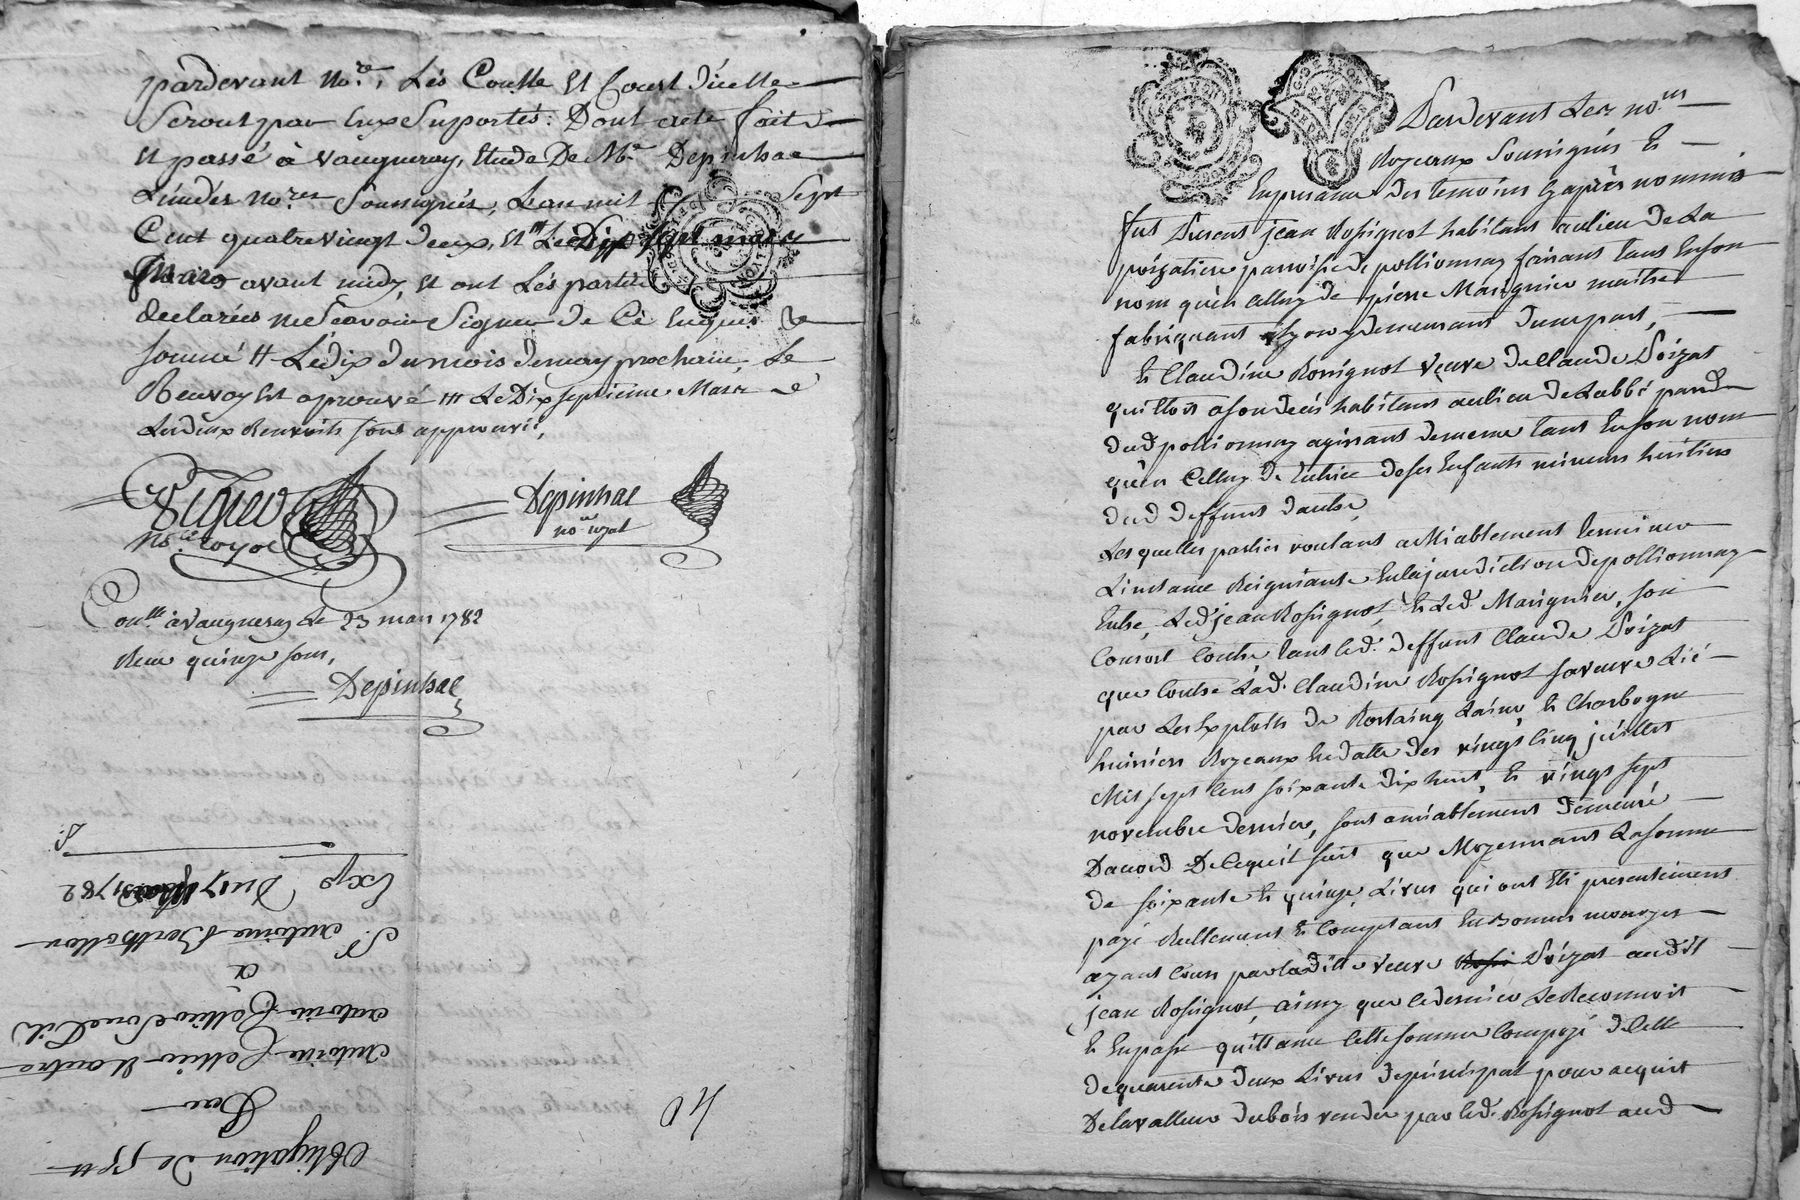 pardevant No.re, Les Coutte Et Coust d'icelle
Seront par Eux Suportés. Dont acte fait
Et passé à vaugneray, Etude De Me. Depinhac
L'un des no.res Soussignés, L'an mil Sept
Cent quatre vingt deux, Et Le Dix Sept mars
mars avant midy, Et ont Les parties
declarées ne Scavoir Signer De Ce Enquis Et
Sommé # Le dix du mois de may prochain, Le
Renvoy Est aprouvé ## Le Dix septieme Mars
Les deux Renvoits sont approuvés,
no.re royal
Depinhac
no.re royal
Con.llé a vaugneray Le 23 mars 1782
Recu quinze sous,
Depinhac
Obligation de 55 ll
Par
Antoine Collier Et autre
Antoine Collier Son fils
a
S.r Antoine Berthollon
Exp Du 17 Mars 1782
40
Pardevant Les no.res
Royeaux Soussignés Et
En presance des temoins cy après nommés
fut Present jean Rossignot habitant au lieu de La
poizatiere parroisse de pollionnay faisant tant En son
nom qu'en Celluy de pierre Marignier maitre
fabriquant a Lyon y demeurant d'une part,
Et Claudine Rossignot veuve de Claude Poizat
quittois a son deces habitant au lieu de Labbé par.se
dud pollionnay agissant de meme tant En son nom
qu'en Celluy de tutrice de ses Enfants mineurs heritiers
dud deffunt d'autre,
Lesquelles parties voulant amiablement terminer
L'instance Reigniante En la jurediction de pollionnay
Entre, Led jean Rossignot, Et Led. Marignier, son
Consort Contre tant led. deffunt Claude Poizat
que Contre Lad. Claudine Rossignot sa veuve Lié
par Les Exploits de Rostaing L'ainé, Et Charbogne
huissiers Royeaux En datte des vingt Cinq juillet
Mil sept Cent soixante dix huit, Et vingt sept
novembre dernier, sont amiablement demeuré
D'acord De Ce qui suit que Moyennant La somme
de soixante Et quinze, Livres qui ont Eté presentement
payé Reellement Et Comptant En Bonnes monoyes
ayant Cours par laditte veuve Poizat audit
jean Rossignot, ainsy que ce dernier Le Reconnoit
Et En passe quittance Cette somme Compozé de Celle
de quarente deux Livres de principal pour acquit
De la valleur du bois vendu par led. Rossignot aud